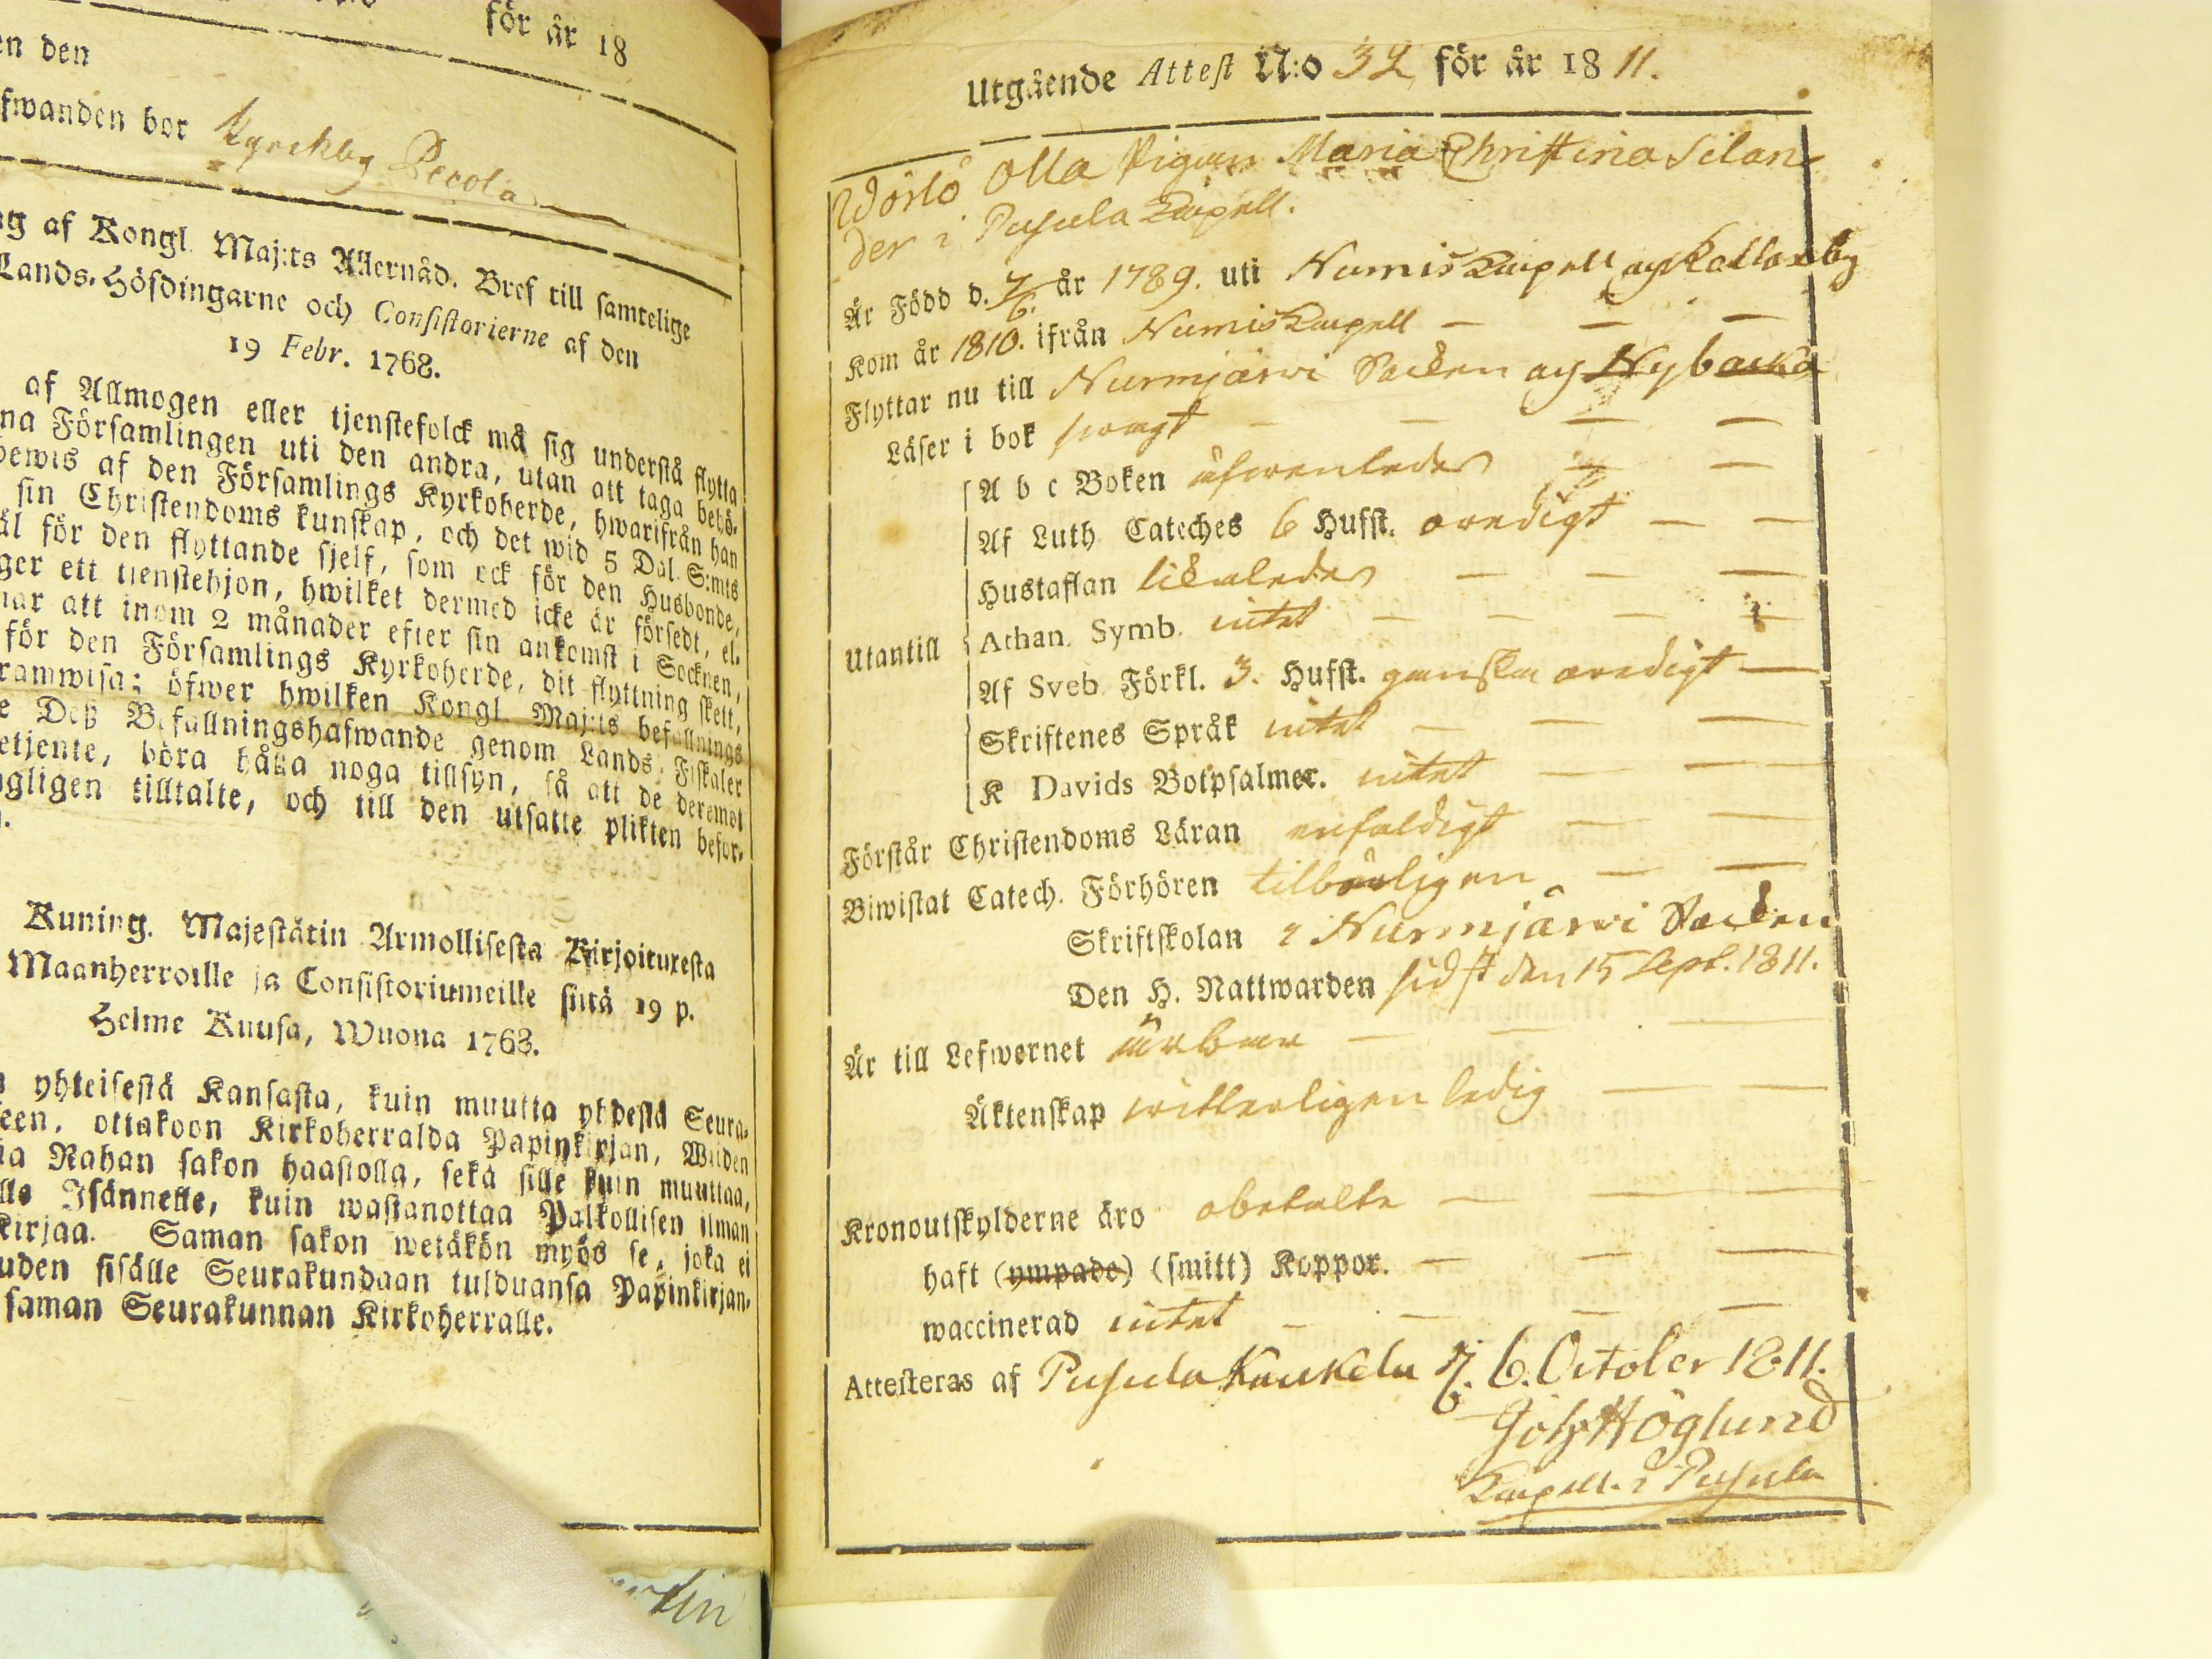 för år 18
en den
fwanden bor Kyrckby Pecola
ng af Kongl. Maj:ts Allernåd. Bref till samtelige
Lands-Höfdingarne och Consistorierne af den
19 Febr. 1768.
af Allmogen eller tjenstefolck må sig understå flytta
na Församlingen uti den andra, utan att taga behö-
bewis af den Församlings Kyrkoherde, hwarifrån han
sin Christendoms kunskap, och det wid 5 Dal. S:mts
äl för den flyttande sjelf, som ock för den Husbonde,
ger ett tienstehjon, hwilket dermed icke är försedt, el-
nar att inom 2 månader efter sin ankomst i Socknen,
för den Församlings Kyrkoherde, dit flyttning skett,
ramwisa; öfwer hwilken Kongl. Maj:ts befallnings
e Deß Befallningshafwande genom Lands Fiskaler
etjente, böra hålla noga tillsyn, så att de deremot
ngligen tilltalte, och till den utsatte plikten befor-
Kuning. Majestätin Armollisesta Kirjoituxesta
Maanherroille ja Consistoriumeille siitä 19 p.
Helme Kuusa, Wuona 1768.
yhteisestä Kansasta, kuin muutta yhdestä Seura-
een, ottakoon Kirkoherralda Papinkirjan, Wiiden
ia Rahan sakon haastolla, sekä sille kuin muuttaa,
lle Isännelle, kuin wastanottaa Palkollisen ilman
kirjaa. Saman sakon wetäkön myös se, joka ei
uden sisälle Seurakundaan tulduansa Papinkirjan-
saman Seurakunnan Kirkoherralle.
Utgående Attest N:o 32 för år 1811.
Wörlö Olla Pigan Maria Christina Silan-
der i Pusula Capell.
Är Född d. 7/6. år 1789. uti Numis Capell och Kallorby
Kom år 1810. ifrån Numis Capell — — —
Flyttar nu till Nurmjärwi Socken och Nybacka
Läser i bok swagt — — — —
A b c Boken äfwenledes — —
Af Luth. Cateches 6 Hufst. oredigt — —
Hustaflan likaledes — — —
Utantill Athan. Symb. intet — — — —
Af Sveb. Förkl. 3. Hufst. ganska oredigt —
Skriftenes Språk intet — — —
K Davids Botpsalmer. intet — — —
Förstår Christendoms Läran enfaldigt — —
Biwistat Catech. Förhören tilbörligen — —
Skriftskolan i Nurmjärwi Socken
Den H. Nattwarden sidst den 15 Sept. 1811.
Är till Lefwernet ärbar — — —
Äktenskap witterligen ledig — —
Kronoutskylderne äro obetalte — — —
haft (ympade) (smitt) Koppor. — — —
waccinerad intet — — — —
Attesteras af Pusula Kaukela d. 6. October 1811.
Höglund
Capell. i Pusula